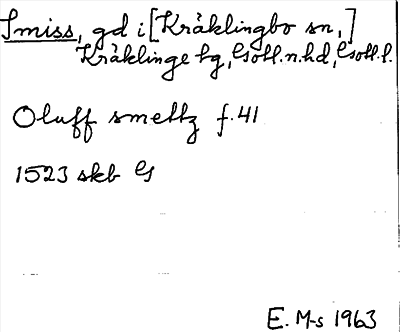 Smiss, gd i [Kräklingbo sn,]
Kräklinge tg, Gotl. n. hd, Gotl. l.
Oluff smettz f. 41
1523 skb G
E. M-s 1963